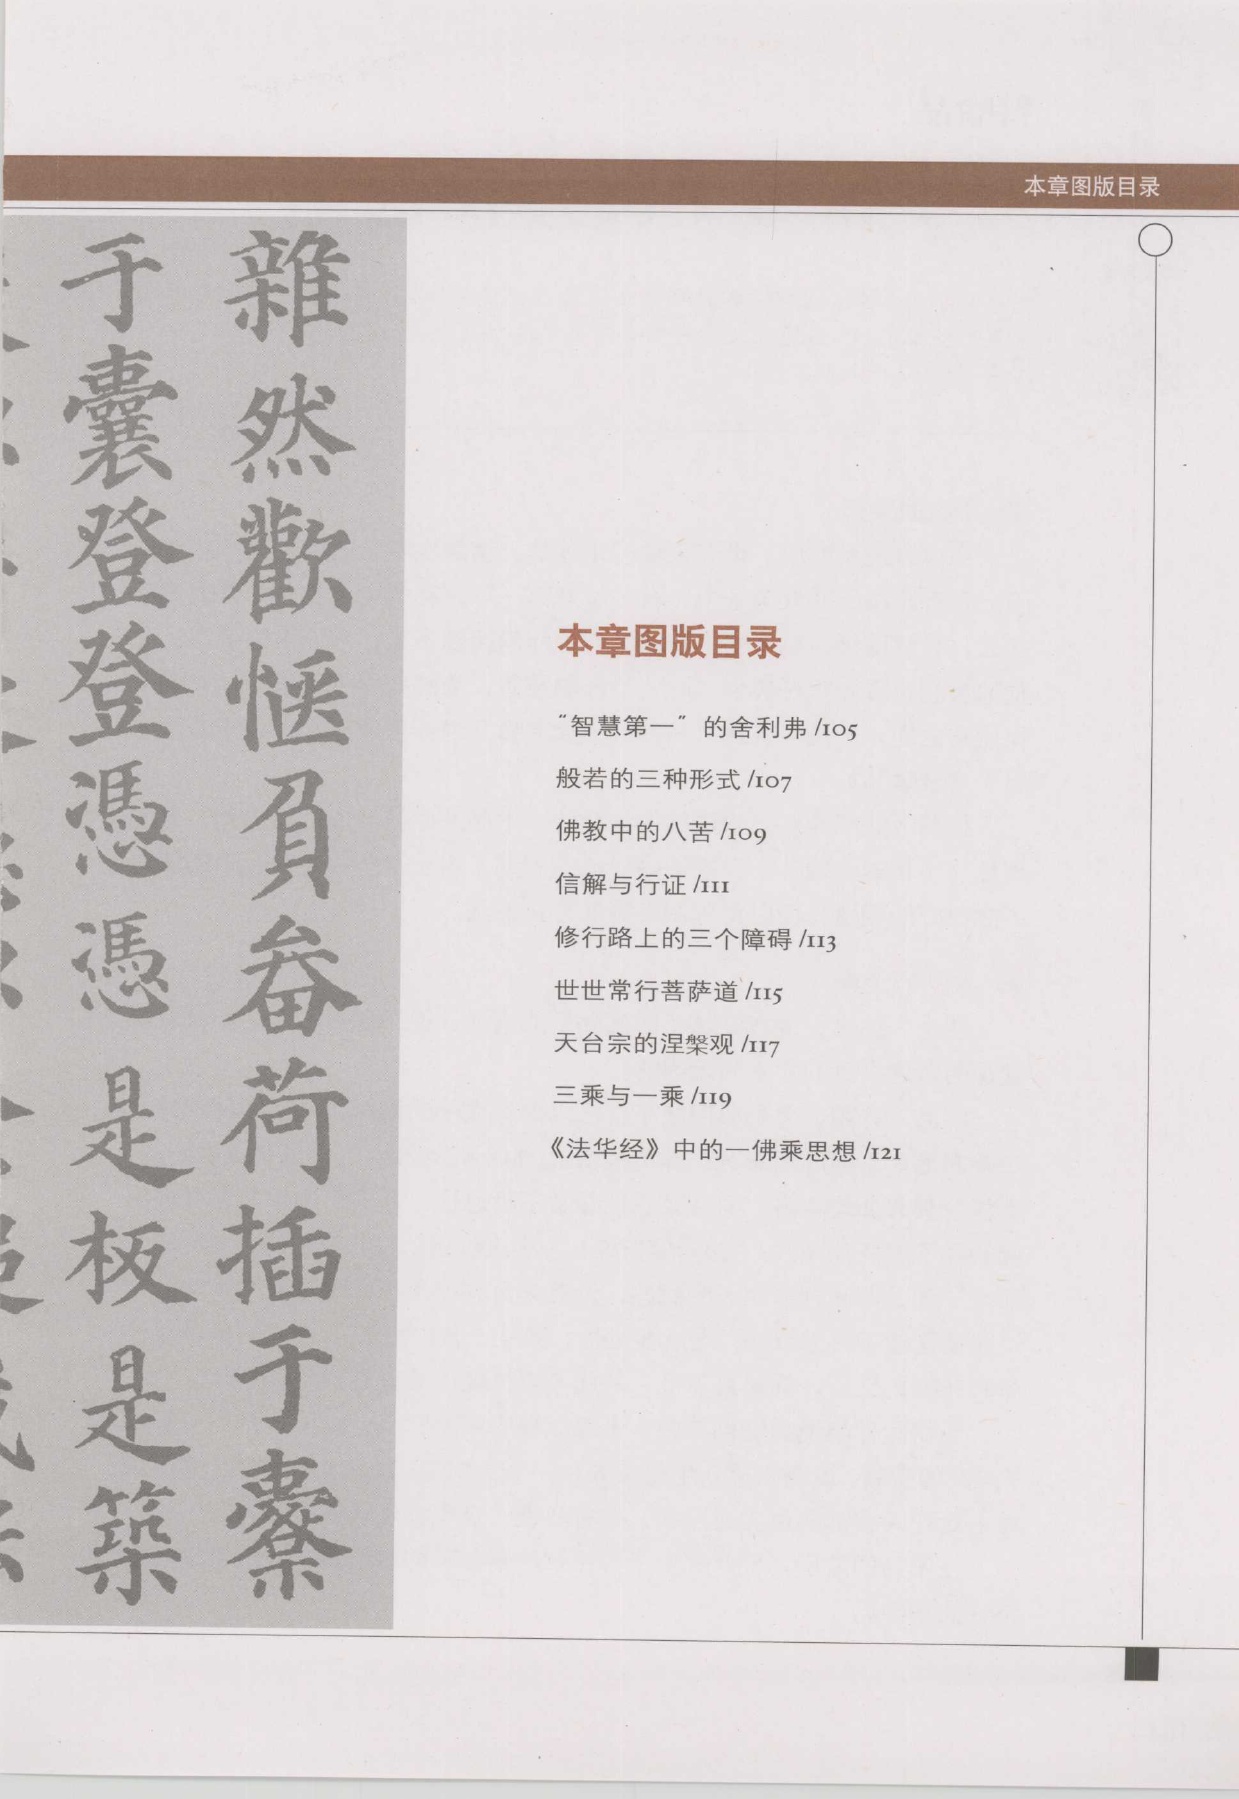 本章图版目录
雜然歡惬負畚荷插于橐
于囊登登憑憑是板是築
本章图版目录
“智慧第一”的舍利弗 /105
般若的三种形式 /107
佛教中的八苦 /109
信解与行证 /111
修行路上的三个障碍 /113
世世常行菩萨道 /115
天台宗的涅槃观 /117
三乘与一乘 /119
《法华经》中的一佛乘思想 /121